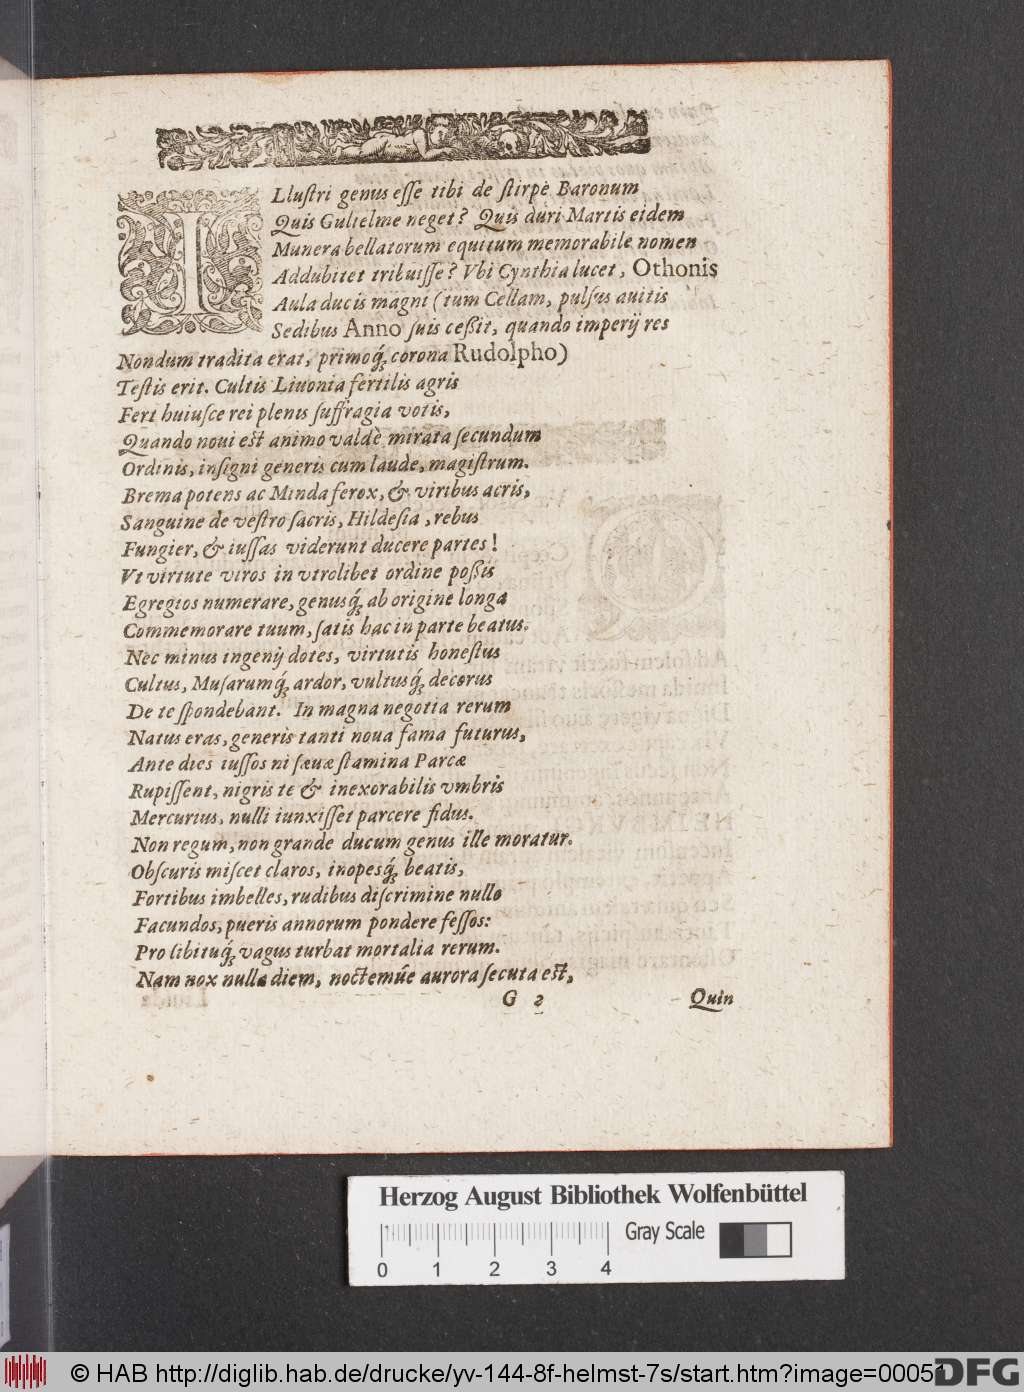 ILluſtri genus eſſe tibi de ſtirpè Baronum
Quis Gulielme neget? Quis duri Martis eidem
Munera bellatorum equitum memorabile nomen
Addubitet tribuiſſe? Vbi Cynthia lucet, Othonis
Aula ducis magni (tum Cellam, pulſus auitis
Sedibus Anno ſuis ceßit, quando imperij res
Nondum tradita erat, primoq́ꝫ corona Rudolpho)
Teſtis erit. Cultis Liuonia fertilis agris
Fert huiuſce rei plenis ſuffragia votis,
Quando noui eſt animo valdè mirata ſecundum
Ordinis, inſigni generis cum laude, magiſtrum.
Brema potens ac Minda ferox, & viribus acris,
Sanguine de veſtro ſacris, Hildeſia, rebus
Fungier, & iuſſas viderunt ducere partes!
Vt virtute viros in vtrolibet ordine poßis
Egregios numerare, genusq́ꝫ ab origine longa
Commemorare tuum, ſatis hac in parte beatus.
Nec minus ingenij dotes, virtutis honeſtus
Cultus, Muſarumq́ꝫ ardor, vultusq́ꝫ decorus
De te ſpondebant. In magna negotia rerum
Natus eras, generis tanti noua fama futurus,
Ante dies iuſſos ni ſæuæ ſtamina Parcæ
Rupiſſent, nigris te & inexorabilis vmbris
Mercurius, nulli iunxiſſet parcere fidus.
Non regum, non grande ducum genus ille moratur.
Obſcuris miſcet claros, inopesq́ꝫ beatis,
Fortibus imbelles, rudibus diſcrimine nullo
Facundos, pueris annorum pondere feſſos:
Pro libituq́ꝫ vagus turbat mortalia rerum.
Nam nox nulla diem, noctemúe aurora ſecuta eſt,
G 2 Quin
Herzog August Bibliothek Wolfenbüttel
Gray Scale
0 1 2 3 4
© HAB http://diglib.hab.de/drucke/yv-144-8f-helmst-7s/start.htm?image=00051
DFG